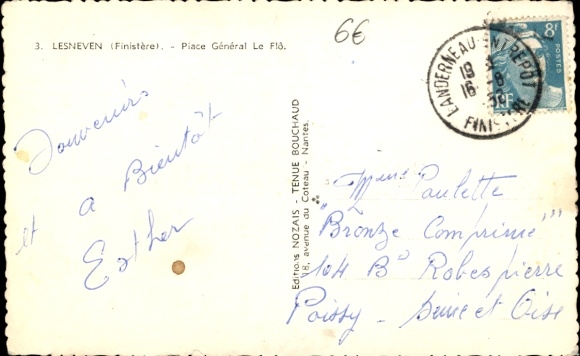 6€
3. LESNEVEN (Finistère). - Place Général Le Flô.
Souvenirs
et a Bientôt
Esther
Editions NOZAIS - TENUE BOUCHAUD
18, avenue du Coteau - Nantes.
LANDERNEAU ENTREPOT
19
16 - 8
FINISTERE
8F
POSTES
RF
Mme Paulette
"Bronze Comprimé"
104 Bd Robespierre
Poissy - Seine et Oise